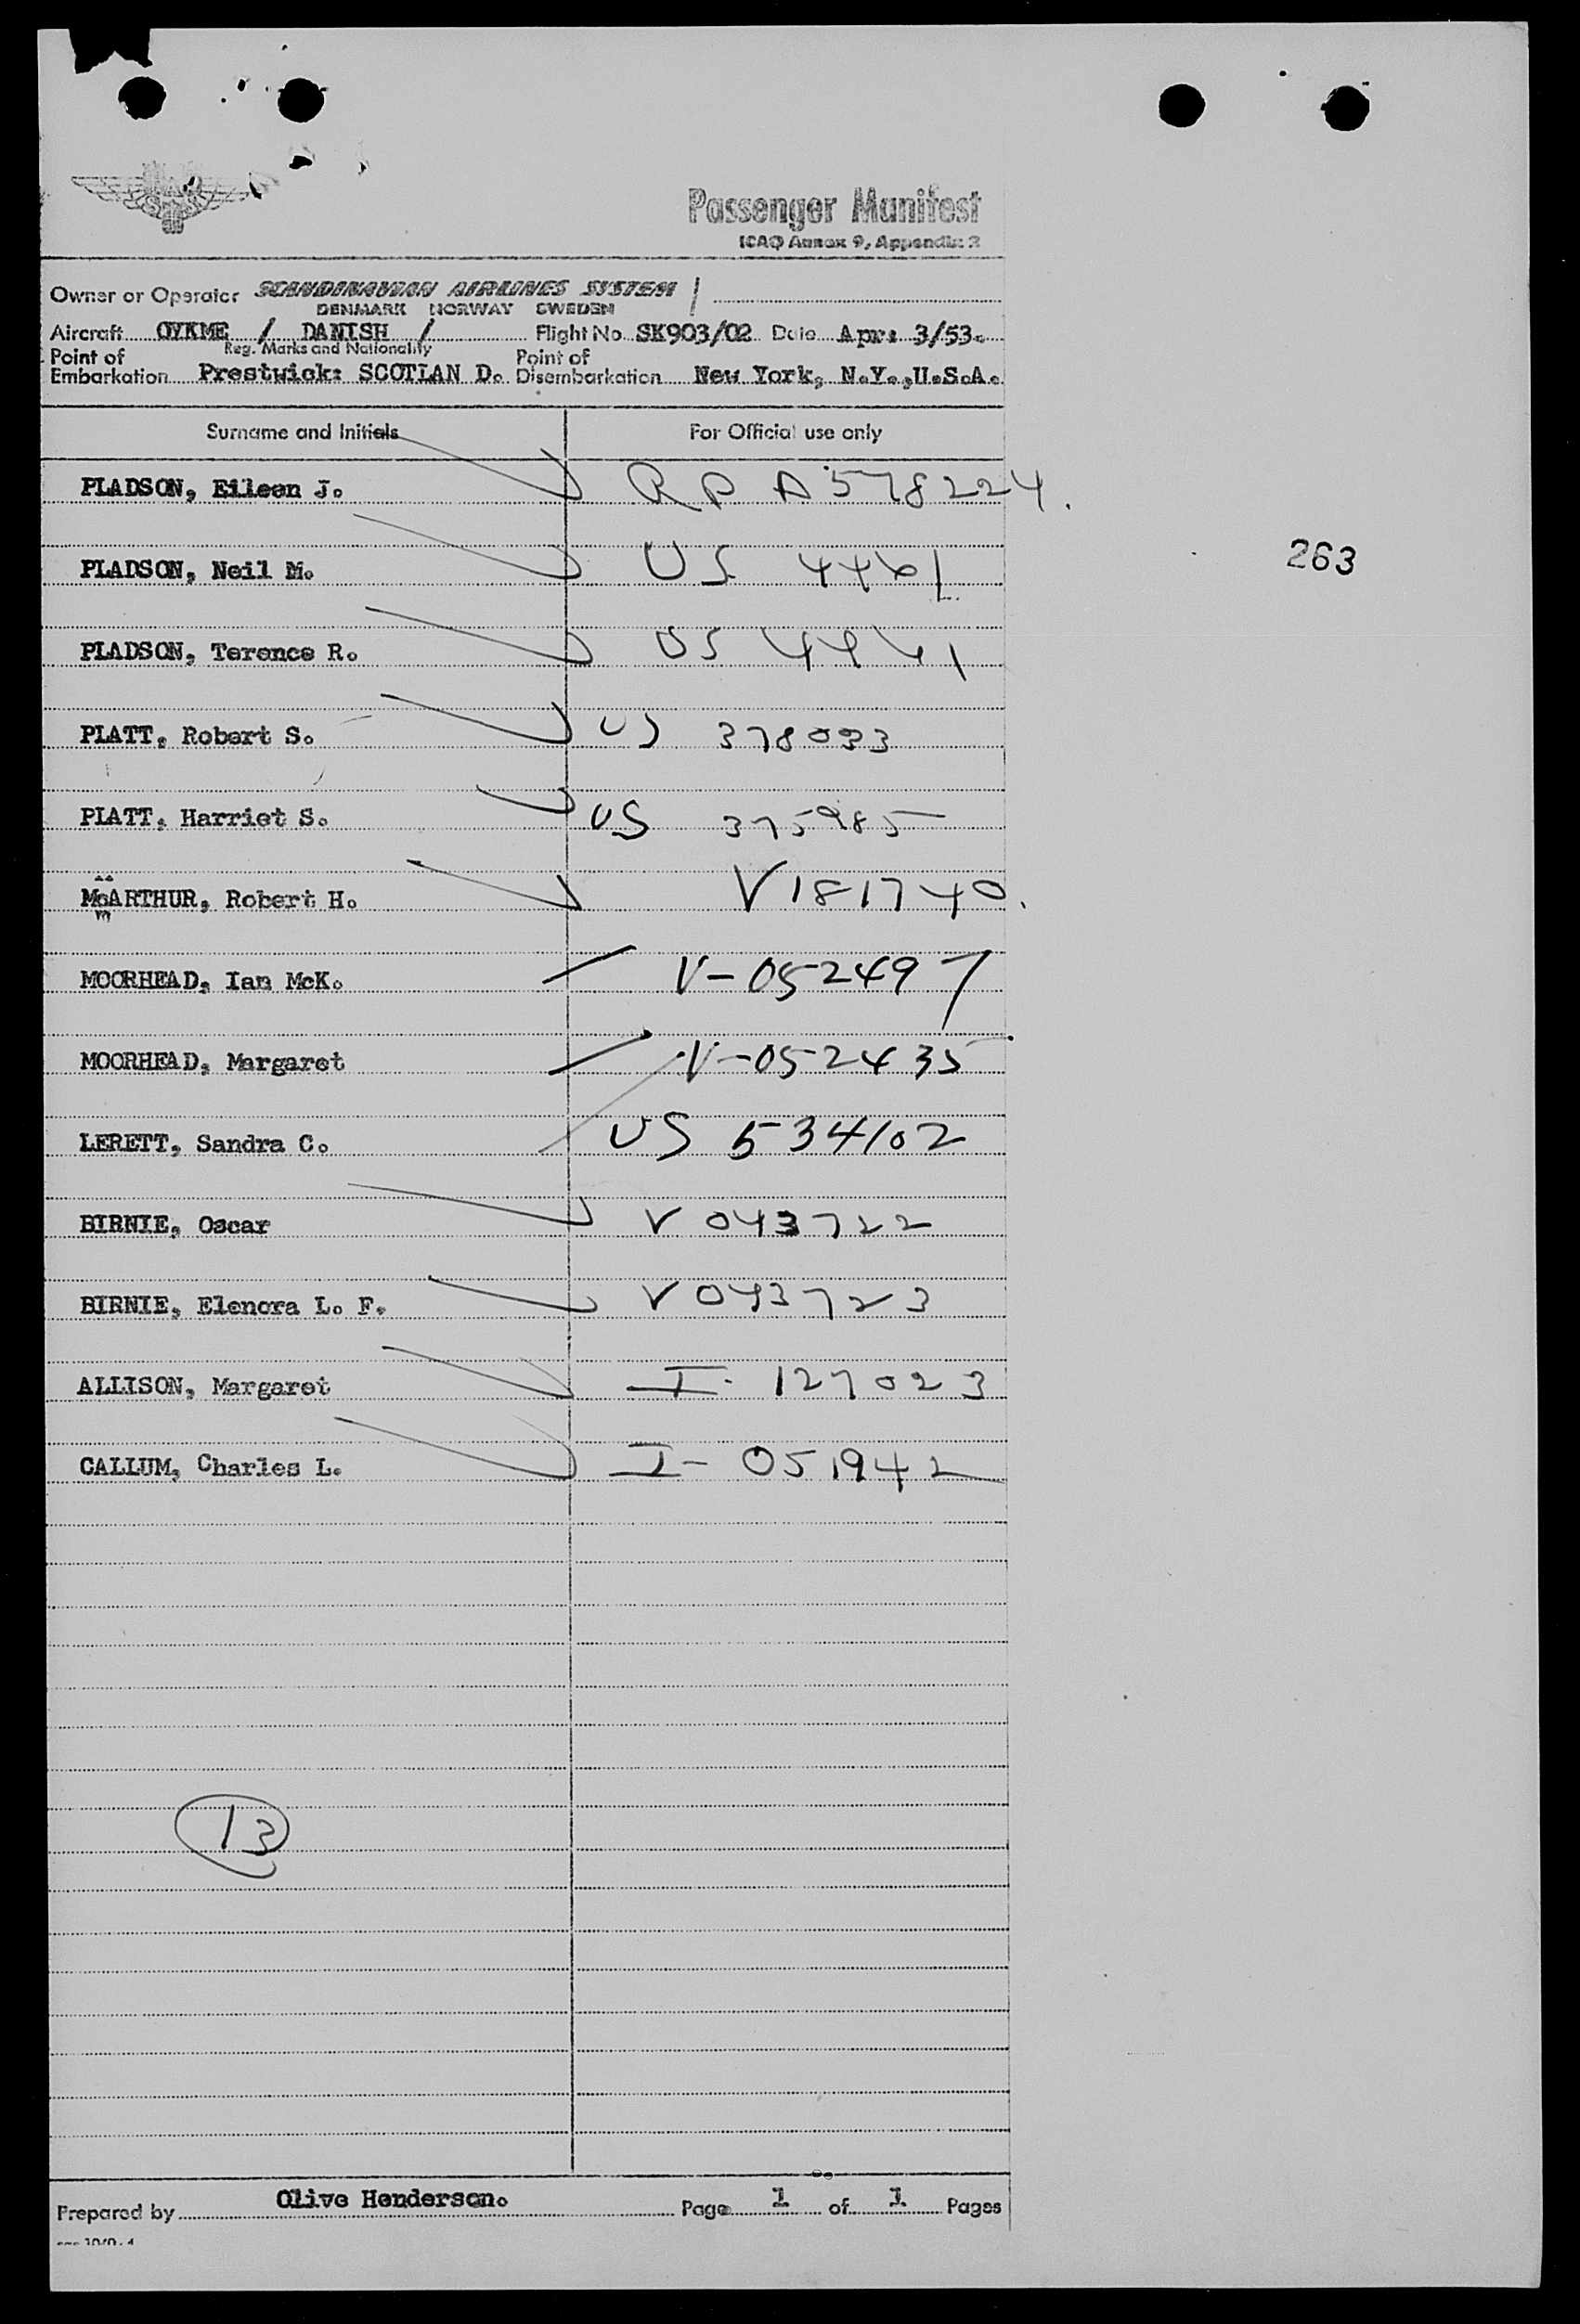 SAS
Passenger Manifest
ICAO Annex 9, Appendix 3
Owner or Operator SCANDINAVIAN AIRLINES SYSTEM /
DENMARK NORWAY SWEDEN
Aircraft OYKME / DANISH / Flight No SK903/02 Date Apr: 3/53.
Reg. Marks and Nationality
Point of Embarkation Prestwick: SCOTLAN D. Point of Disembarkation New York, N.Y.,U.S.A.
Surname and Initials For Official use only
PLADSON, Eileen J. RP A578224.
PLADSON, Neil M. US 4461
263
PLADSON, Terence R. US 4461
PLATT, Robert S. US 378093
PLATT, Harriet S. US 375985
McARTHUR, Robert H. V181740.
MOORHEAD, Ian McK. V-052497
MOORHEAD, Margaret V-052435
LERETT, Sandra C. US 534102
BIRNIE, Oscar V 043722
BIRNIE, Elenora L. F. V 043723
ALLISON, Margaret I- 127023
CALLUM, Charles L. I- 051942
13
Prepared by Olive Henderson. Page 1 of 1 Pages